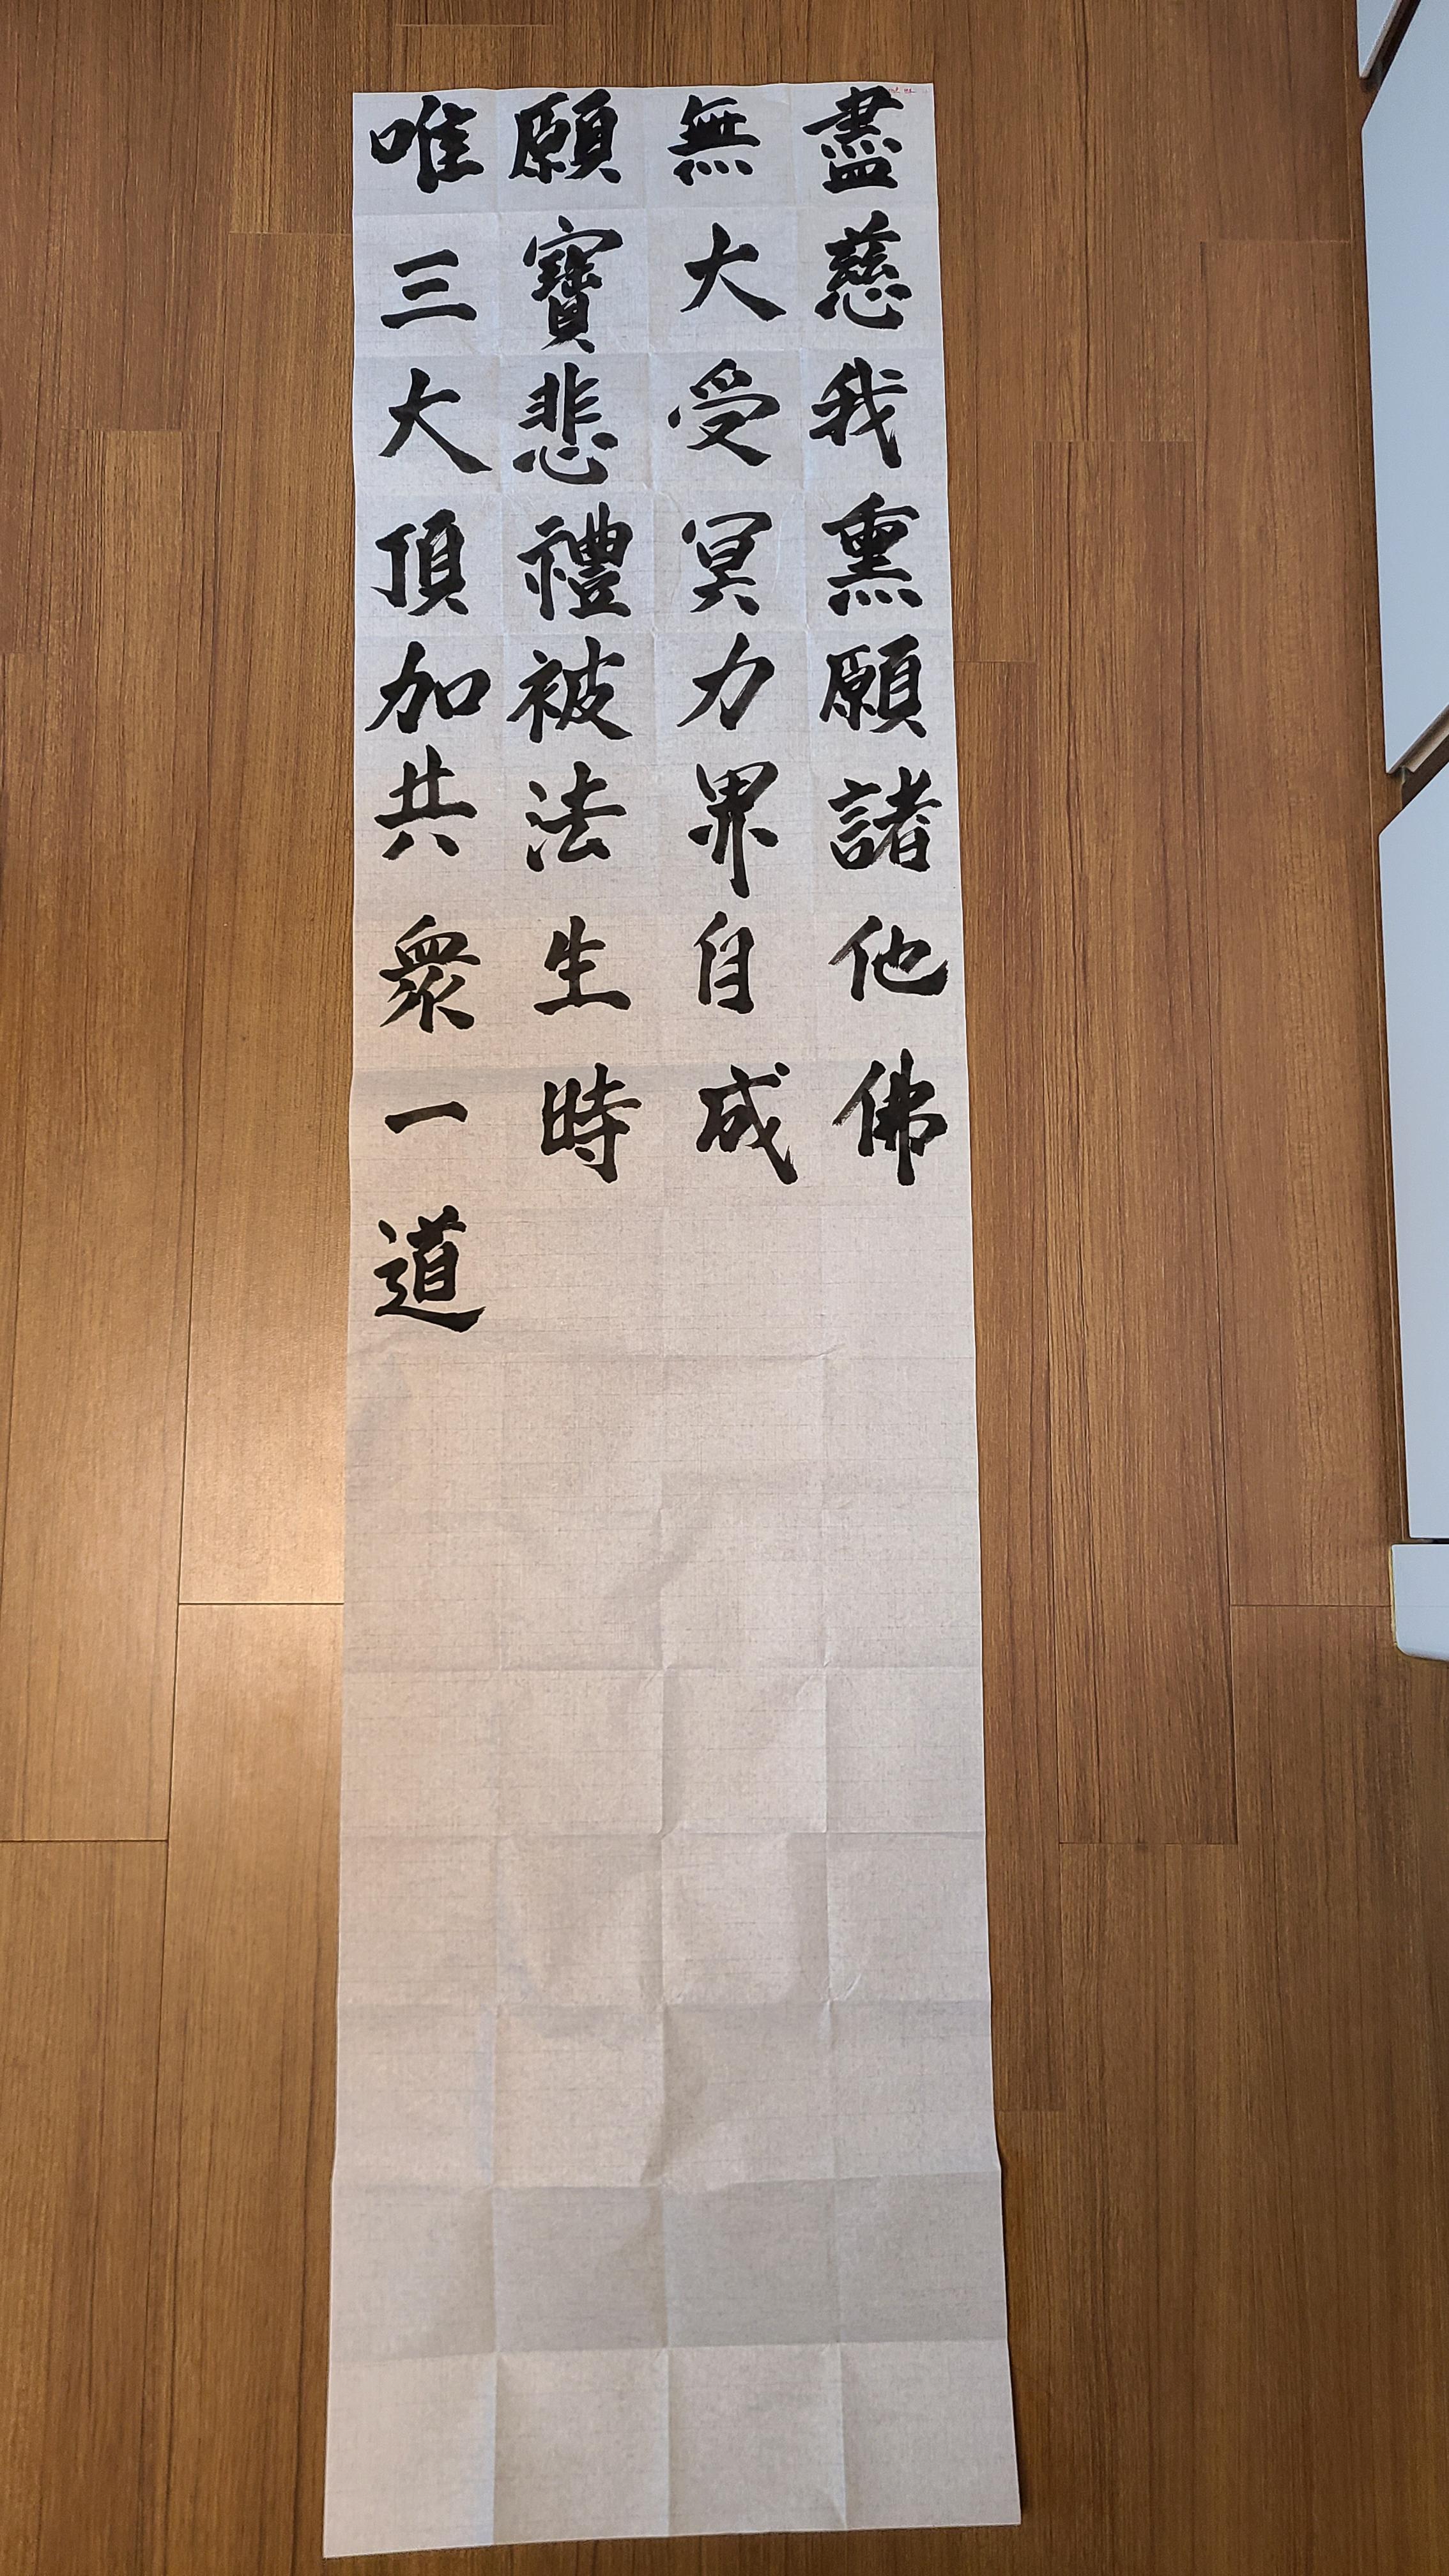 唯願無盡
三寶大慈
大悲受我
頂禮冥熏
加被力願
共法界諸
衆生自他
一時成佛
道